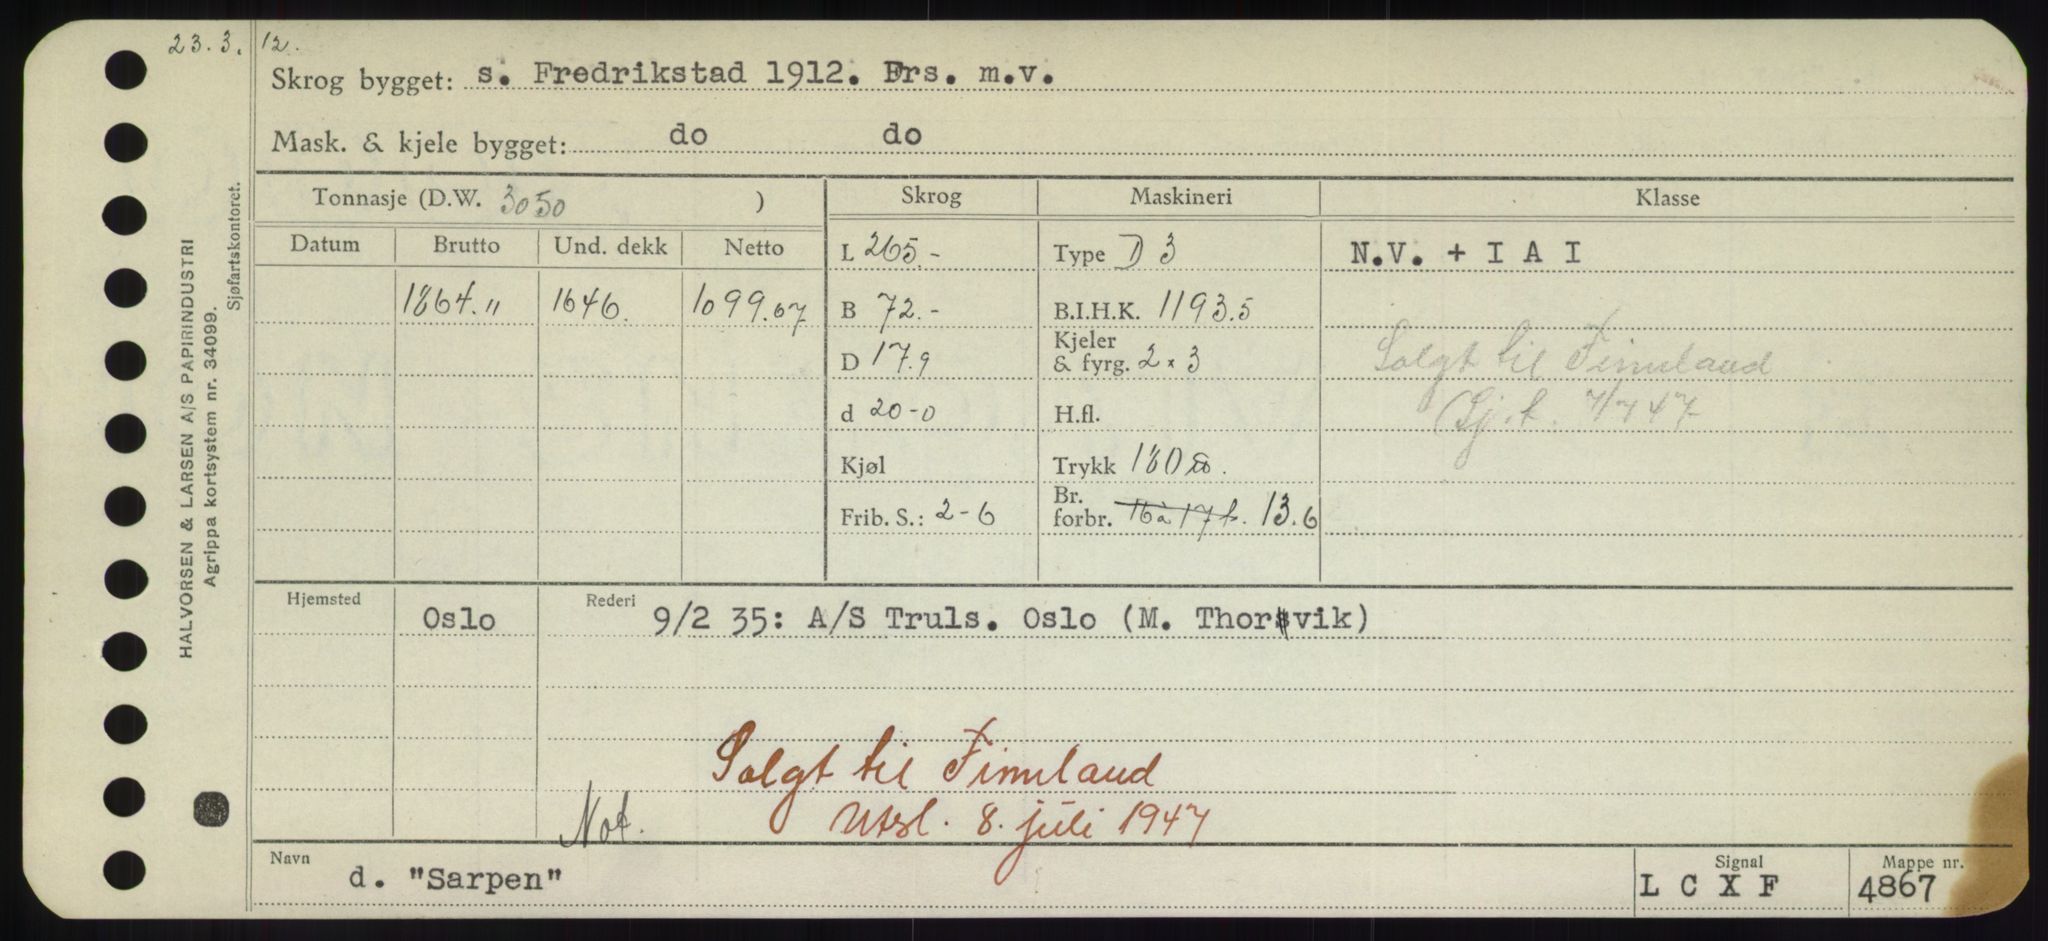 23.3.12.
Skrog bygget: s. Fredrikstad 1912. Frs. m.v.
Mask. & kjele bygget: do do
Tonnasje (D.W. 3050 ) Skrog Maskineri Klasse
Datum Brutto Und. dekk Netto L 265.- Type D 3 N.V. + I A I
1864.„ 1646. 1099.67 B 72.- B.I.H.K. 1193.5
D 17.9 Kjeler & fyrg. 2 x 3 Solgt til Finnland
d 20-0 H.fl. (Sj.t. 7/7 47
Kjøl Trykk 180 ℔.
Frib. S.: 2-6 Br. forbr. 16 à 17 t. 13.6
Hjemsted Oslo Rederi 9/2 35: A/S Truls. Oslo (M. Thorvik)
Solgt til Finnland
Not. Utsl. 8. juli 1947
Navn d. "Sarpen" Signal L C X F Mappe nr. 4867
HALVORSEN & LARSEN A/S PAPIRINDUSTRI
Agrippa kortsystem nr. 34099.
Sjøfartskontoret.